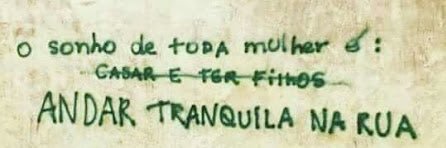 o sonho de toda mulher é:
CASAR E TER FILHOS
ANDAR TRANQUILA NA RUA